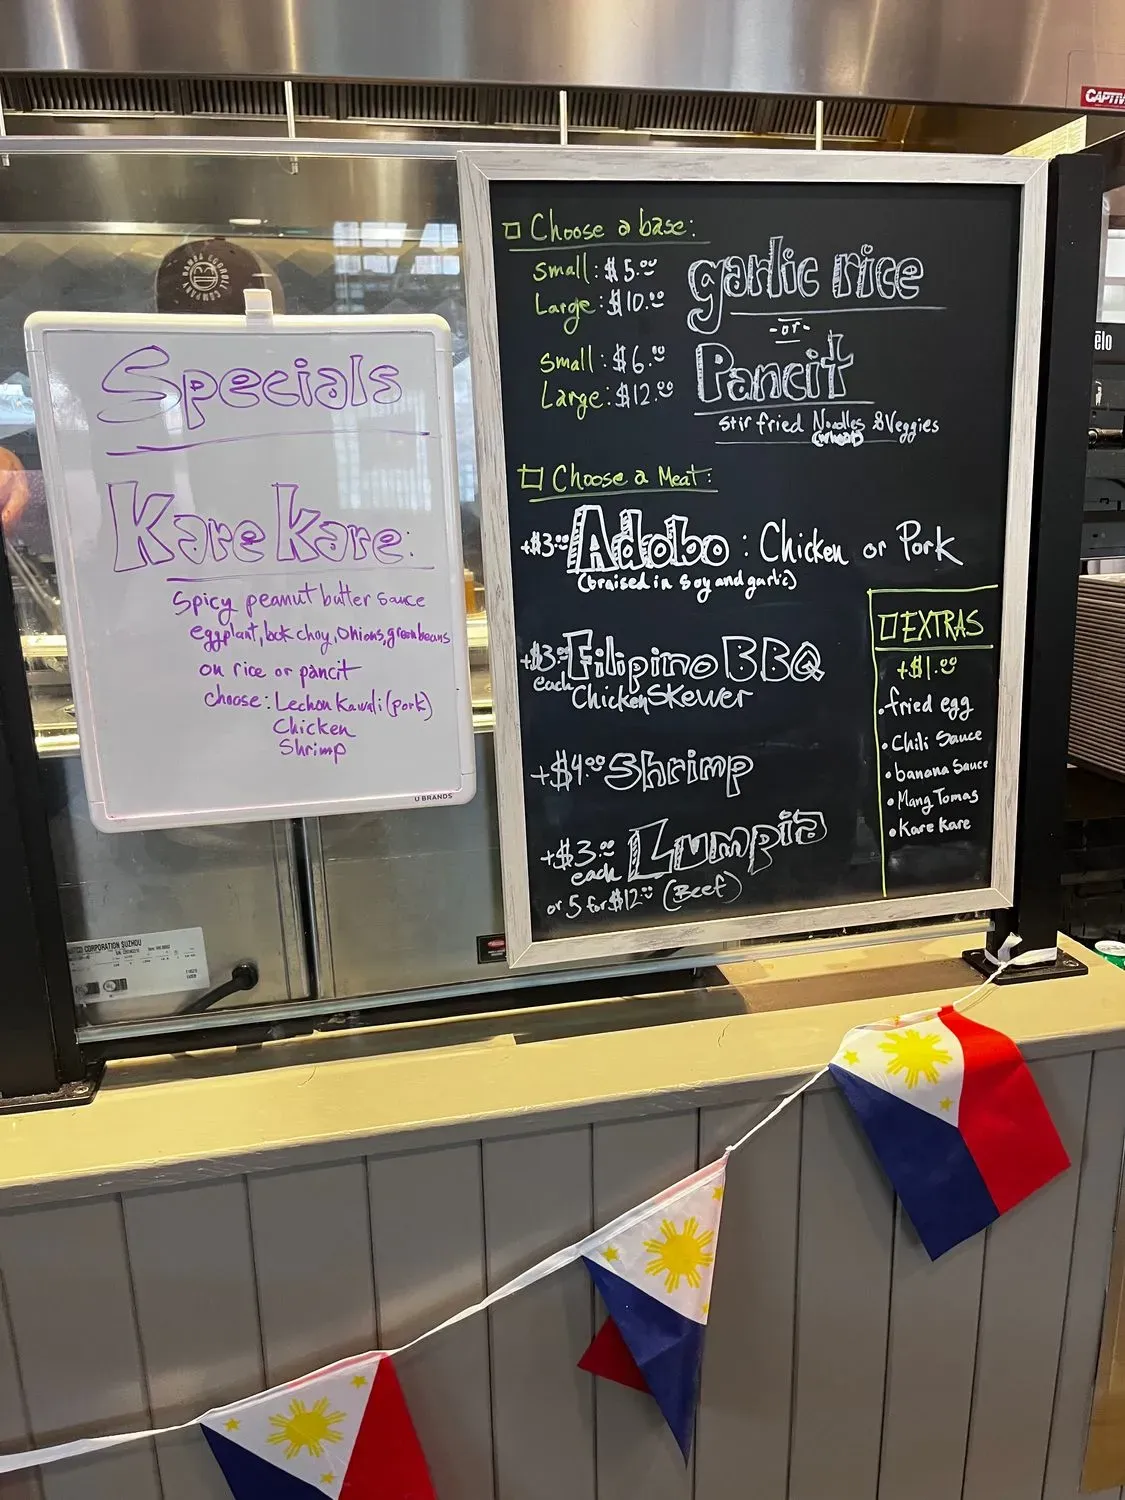 CAPTIV
BAMBA EGGROLLS COMPANY
Specials
Kare Kare:
Spicy peanut butter sauce
eggplant, bok choy, onions, green beans
on rice or pancit
choose: Lechon Kawali (pork)
Chicken
Shrimp
U BRANDS
□ Choose a base:
Small: $5.00
Large: $10.00
garlic rice
-or-
Small: $6.00
Large: $12.00
Pancit
stir fried Noodles & Veggies
(wheat)
□ Choose a Meat:
+$3.00 Adobo: Chicken or Pork
(braised in soy and garlic)
+$3.00 each Filipino BBQ
Chicken Skewer
+$4.00 Shrimp
+$3.00 each Lumpia
or 5 for $12.00 (Beef)
□ EXTRAS
+$1.00
• fried egg
• Chili Sauce
• banana Sauce
• Mang Tomas
• Kare Kare
ēlo
CORPORATION SUZHOU